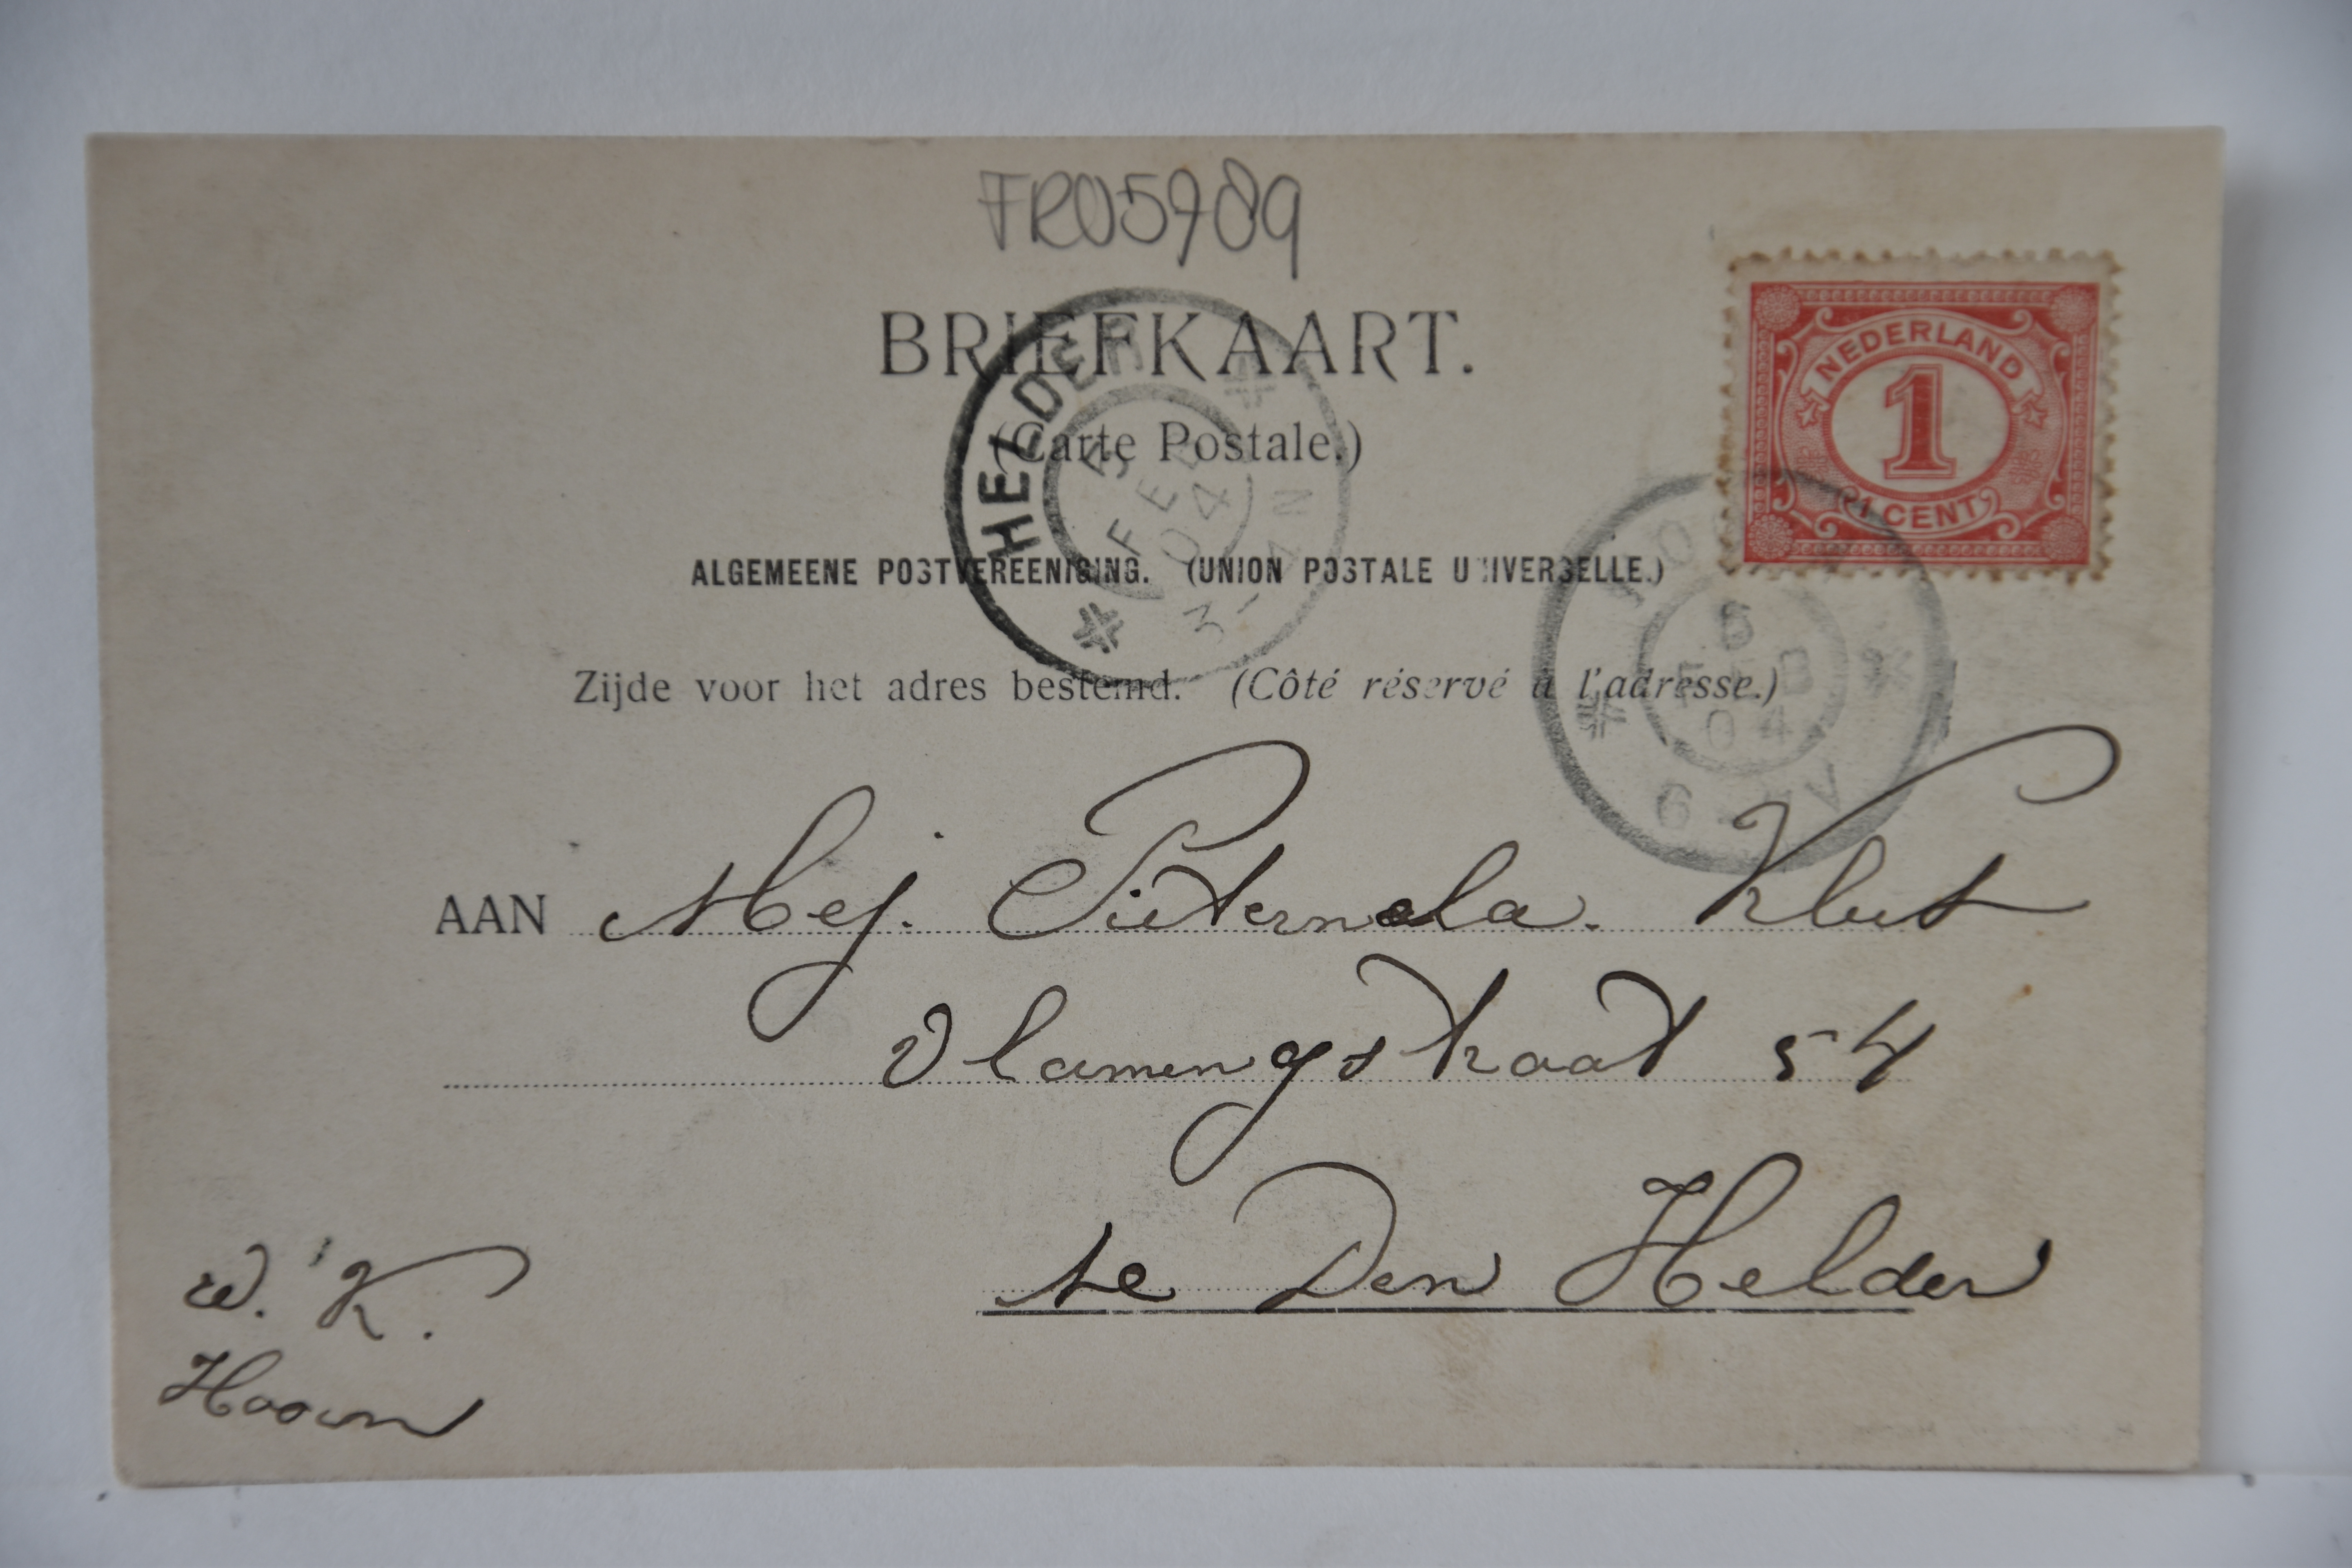 FR05989
BRIEFKAART.
(Carte Postale.)
NEDERLAND
1
1 CENT
HELDER
FEB
04
3-4N
ALGEMEENE POSTVEREENIGING. (UNION POSTALE UNIVERSELLE.)
6
FEB
04
Zijde voor het adres bestemd. (Côté réservé à l'adresse.)
AAN Mej. Pieternela. Klut
Vlamingstraat 54
te Den Helder
W. K.
Hoorn